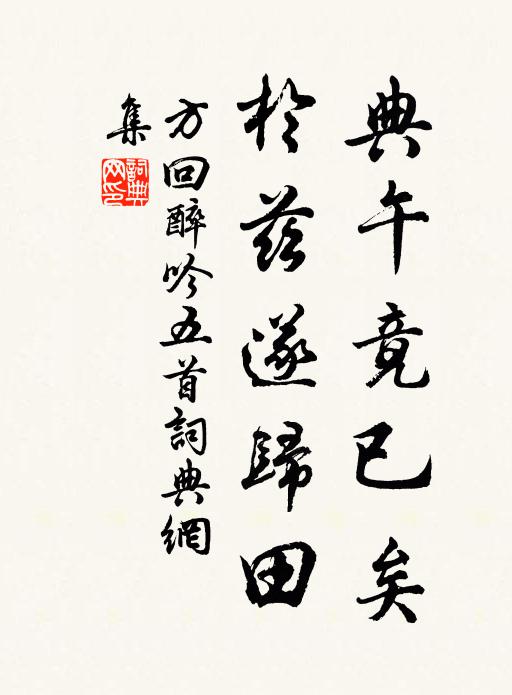 典午竟已矣
於茲遂歸田
方回醉吟五首詞典網
集
詞典網印